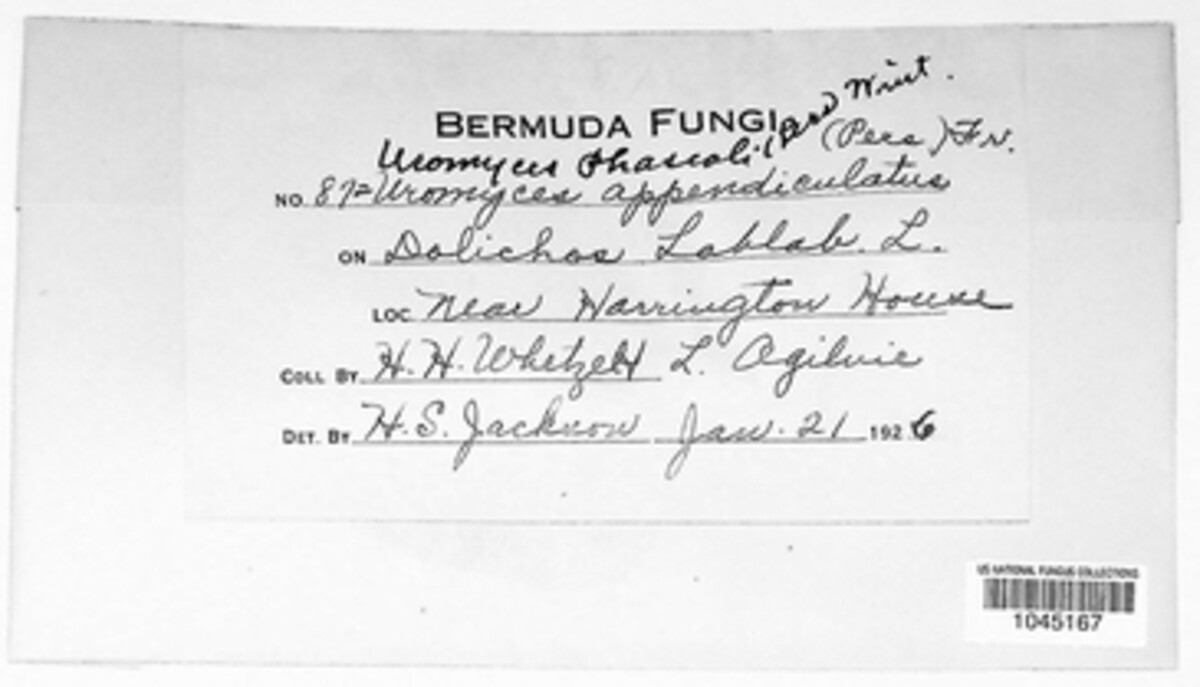 BERMUDA FUNGI
Uromyces Phaseoli (Pers) Wint.
(Pers) Fr.
NO. 87= Uromyces appendiculatus
ON Dolichos Lablab. L.
LOC Near Harrington House
COLL BY H. H. Whetzel L. Ogilvie
DET. BY H. S. Jackson Jan. 21 1926
US NATIONAL FUNGUS COLLECTIONS
1045167